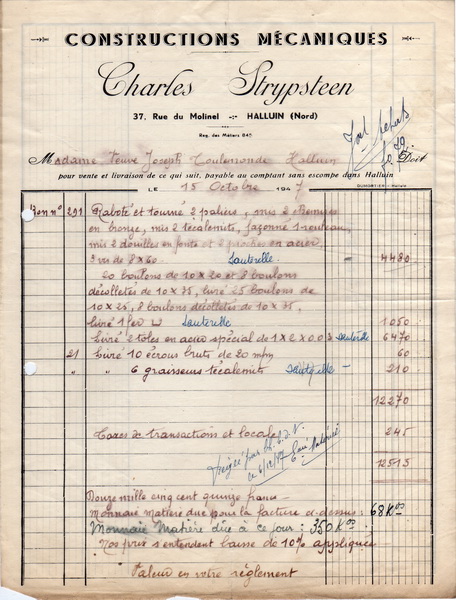 CONSTRUCTIONS MÉCANIQUES
Charles Strypsteen
37, Rue du Molinel -:- HALLUIN (Nord)
Reg. des Métiers 845
Madame Veuve Joseph Halluin Doit
pour vente et livraison de ce qui suit, payable au comptant sans escompte dans Halluin
LE 15 Octobre 1947
Bon n° 291 Raboté et tourné 2 paliers, mis 2 chemises
en bronze, mis 2 técalemits, façonné 1 rouleau,
mis 2 douilles en fonte et 2 broches en acier
3 vis de 8 x 60. Sauterelle = 4480
20 boulons de 10 x 20 et 8 boulons
décolletés de 10 x 75, livré 25 boulons de
10 x 25, 8 boulons décolletés de 10 x 75,
livré 1 fer U Sauterelle 1050
Livré 2 tôles en acier spécial de 1 x 2 x 0.03 Sauterelle 6470
21 Livré 10 écrous bruts de 20 mpm 60
" " 6 graisseurs técalemits 210
12270
Taxes de transactions et locale 245
12515
Douze mille cinq cent quinze francs
Monnaie matière due pour la facture ci-dessus : 68 Kos
Monnaie Matière due à ce jour : 350 Kos
Nos prix s'entendent baisse de 10% appliquée
Valeur en votre règlement